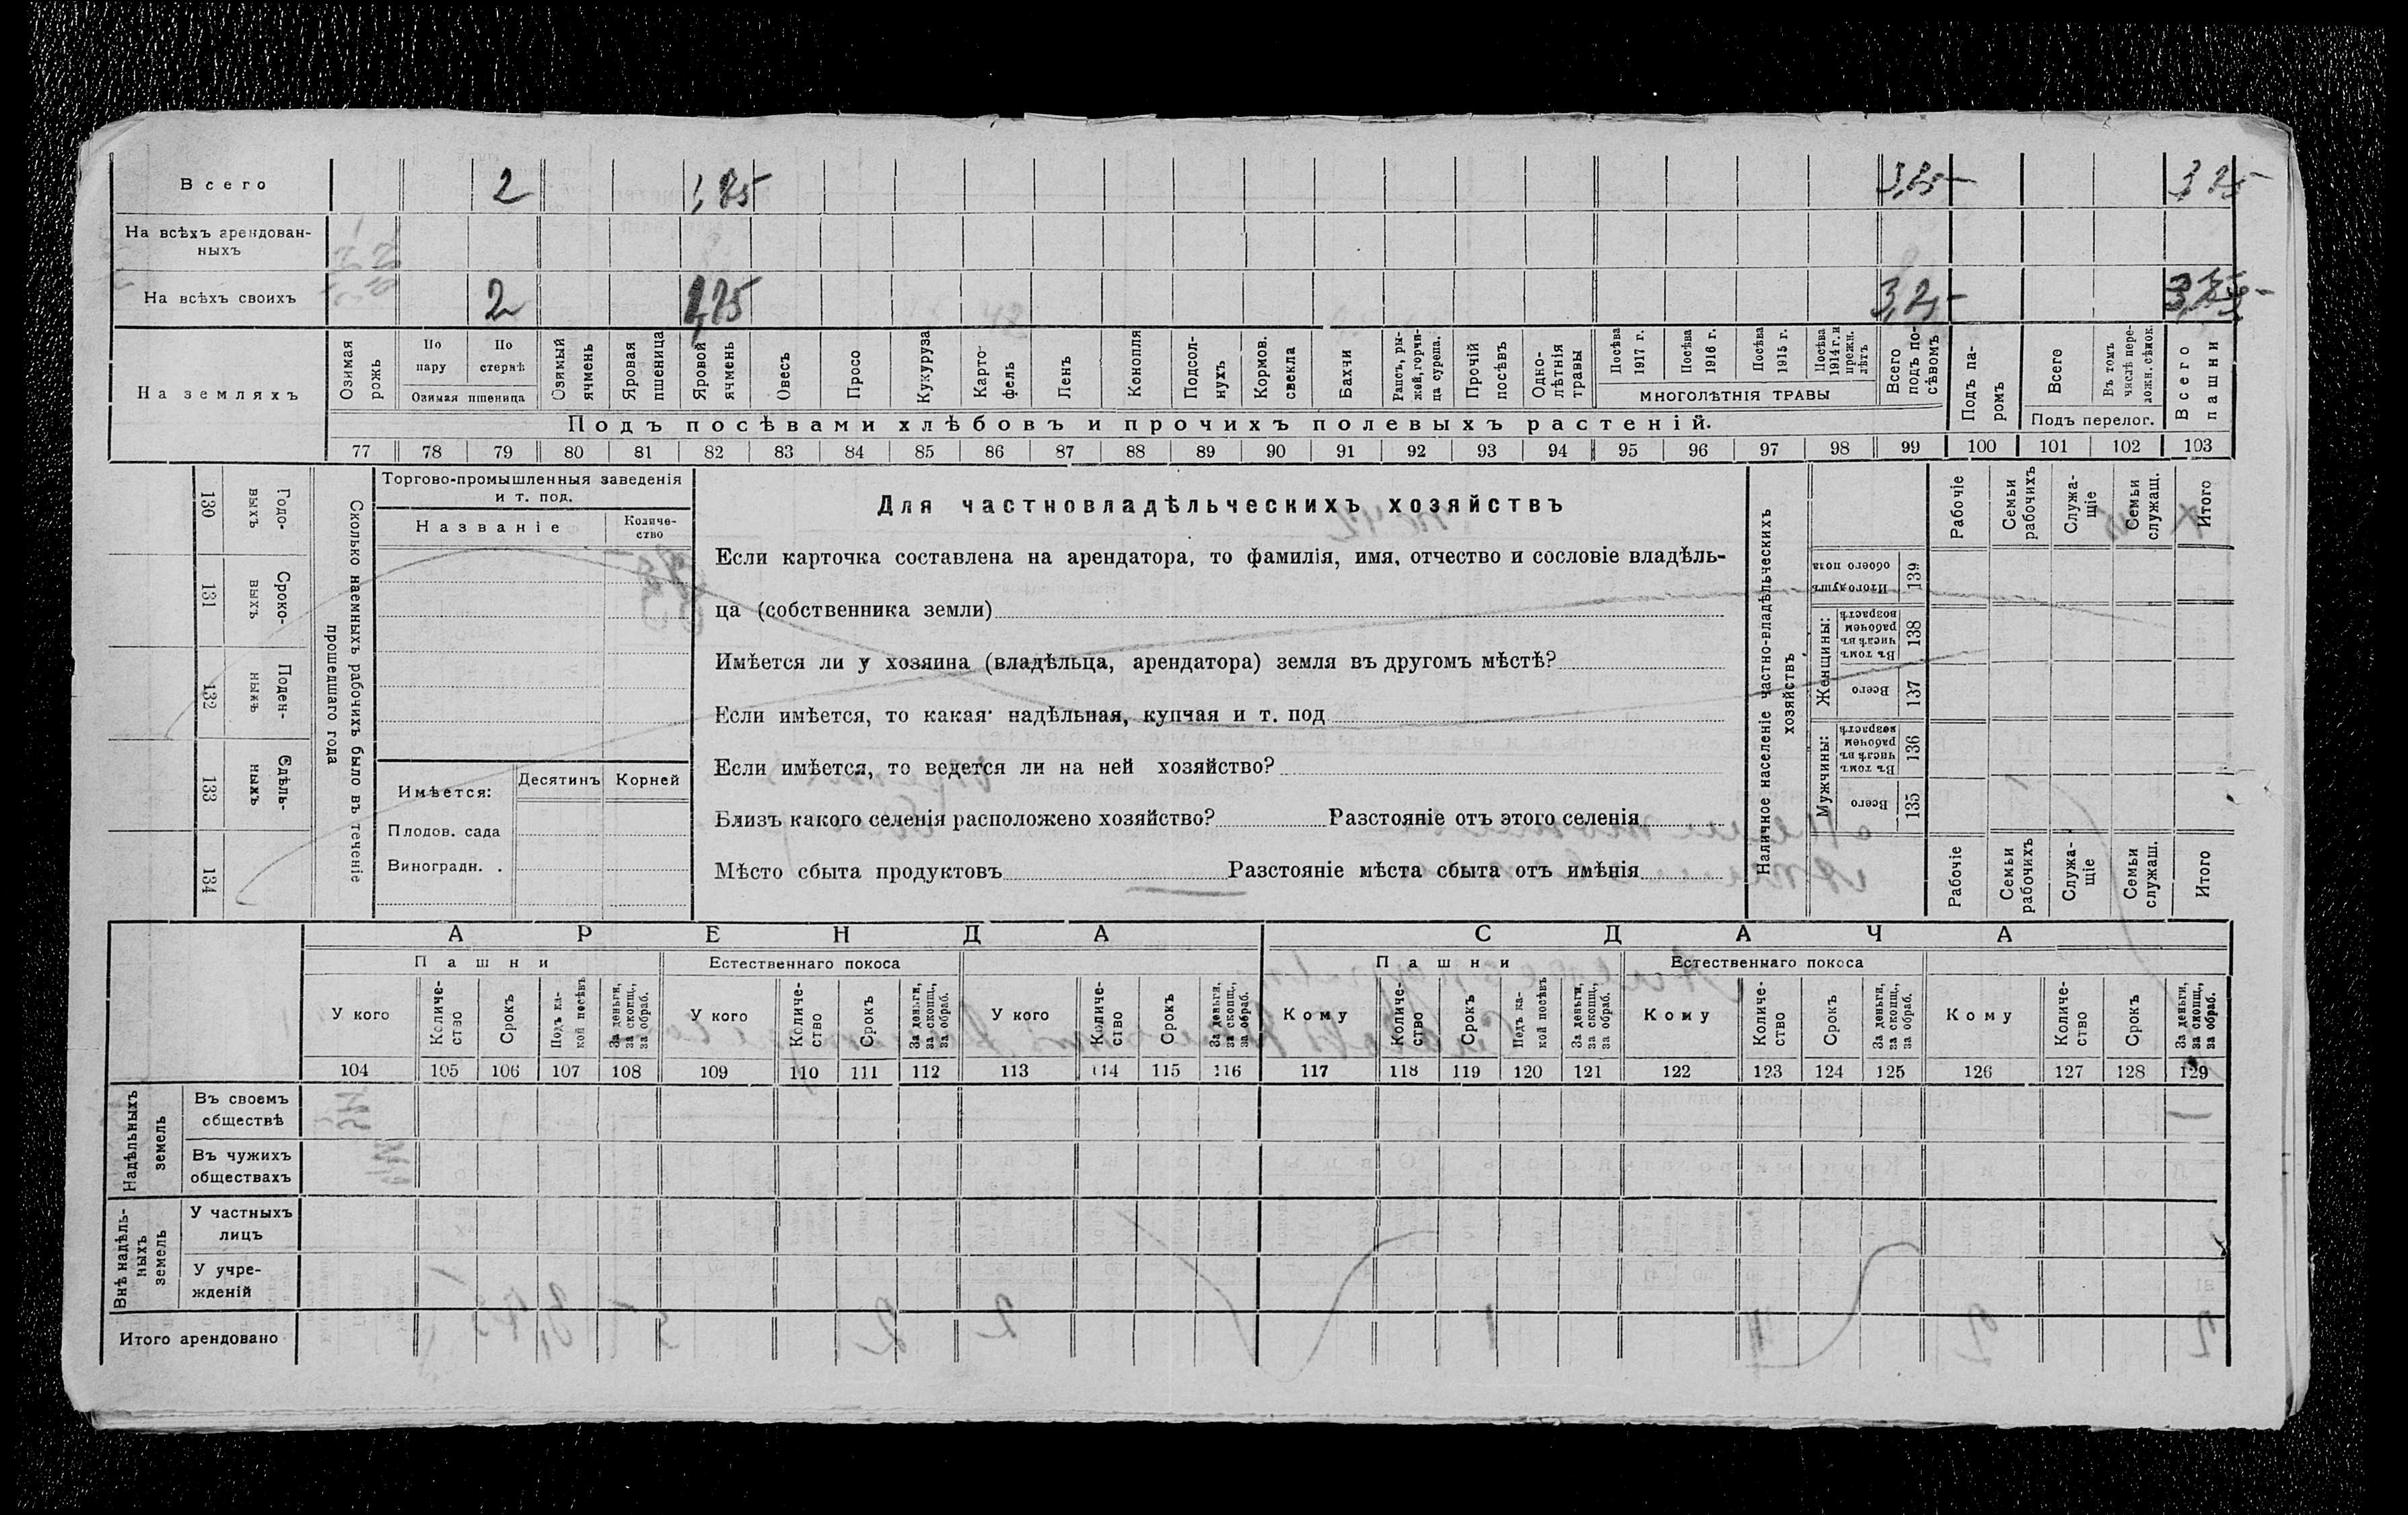 Всего 2 1,25 3,25 3,25
На всѣхъ арендован-
ныхъ
На всѣхъ своихъ 2 1,25 3,25
На земляхъ
Озимая рожь
По пару
По стернѣ
Озимая пшеница
Озимый ячмень
Яровая пшеница
Яровой ячмень
Овесъ
Просо
Кукуруза
Карто-
фель
Ленъ
Конопля
Подсол-
нухъ
Кормов. свекла
Бахчи
Рапсъ, ры-
жей, горчи-
ца сурепа.
Прочій посѣвъ
Одно-
лѣтнія травы
Посѣва 1917 г.
Посѣва 1916 г.
Посѣва 1915 г.
Посѣва 1914 г. и прежн. лѣтъ
МНОГОЛѢТНІЯ ТРАВЫ
Всего подъ по-
сѣвомъ
Подъ па-
ромъ
Всего
Въ томъ числѣ пере-
ложн. сѣнок.
Подъ перелог.
Всего пашни
Подъ посѣвами хлѣбовъ и прочихъ полевыхъ растеній.
77 78 79 80 81 82 83 84 85 86 87 88 89 90 91 92 93 94 95 96 97 98 99 100 101 102 103
130 Годо-
выхъ
131 Сроко-
выхъ
132 Поден-
ныхъ
133 Сдѣль-
ныхъ
134
Сколько наемныхъ рабочихъ было въ теченіе
прошедшаго года
Торгово-промышленныя заведенія
и т. под.
Названіе
Количе-
ство
Имѣется:
Десятинъ Корней
Плодов. сада
Виноградн. .
Для частновладѣльческихъ хозяйствъ
Если карточка составлена на арендатора, то фамилія, имя, отчество и сословіе владѣль-
ца (собственника земли)
Имѣется ли у хозяина (владѣльца, арендатора) земля въ другомъ мѣстѣ?
Если имѣется, то какая надѣльная, купчая и т. под
Если имѣется, то ведется ли на ней хозяйство?
Близъ какого селенія расположено хозяйство? Разстояніе отъ этого селенія
Мѣсто сбыта продуктовъ Разстояніе мѣста сбыта отъ имѣнія
Наличное населеніе частно-владѣльческихъ
хозяйствъ
Рабочіе
Семьи рабочихъ
Служа-
щіе
Семьи служащ.
Итого
Итого душъ обоего пола 139
Женщины:
Въ томъ числѣ въ рабочемъ возрастѣ 138
Всего 137
Мужчины:
Въ томъ числѣ въ рабочемъ возрастѣ 136
Всего 135
Рабочіе
Семьи рабочихъ
Служа-
щіе
Семьи служащ.
Итого
АРЕНДА СДАЧА
Пашни Естественнаго покоса Пашни Естественнаго покоса
У кого
Количе-
ство
Срокъ
Подъ ка-
кой посѣвъ
За деньги, за скопщ., за обраб.
У кого
Количе-
ство
Срокъ
За деньги, за скопщ., за обраб.
У кого
Количе-
ство
Срокъ
За деньги, за скопщ., за обраб.
Кому
Количе-
ство
Срокъ
Подъ ка-
кой посѣвъ
За деньги, за скопщ., за обраб.
Кому
Количе-
ство
Срокъ
За деньги, за скопщ., за обраб.
Кому
Количе-
ство
Срокъ
За деньги, за скопщ., за обраб.
104 105 106 107 108 109 110 111 112 113 114 115 116 117 118 119 120 121 122 123 124 125 126 127 128 129
Надѣльныхъ земель
Въ своемъ
обществѣ
Въ чужихъ
обществахъ
Внѣ надѣль-
ныхъ земель
У частныхъ
лицъ
У учре-
жденій
Итого арендовано